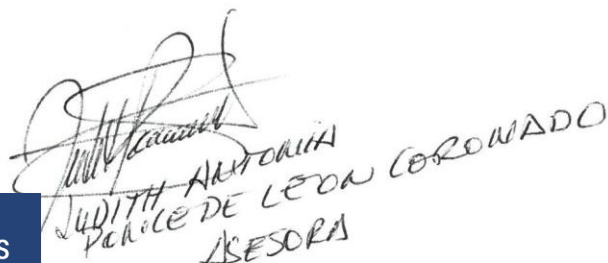 JUDITH ANTONIA
PONCE DE LEON CORONADO
ASESORA
S